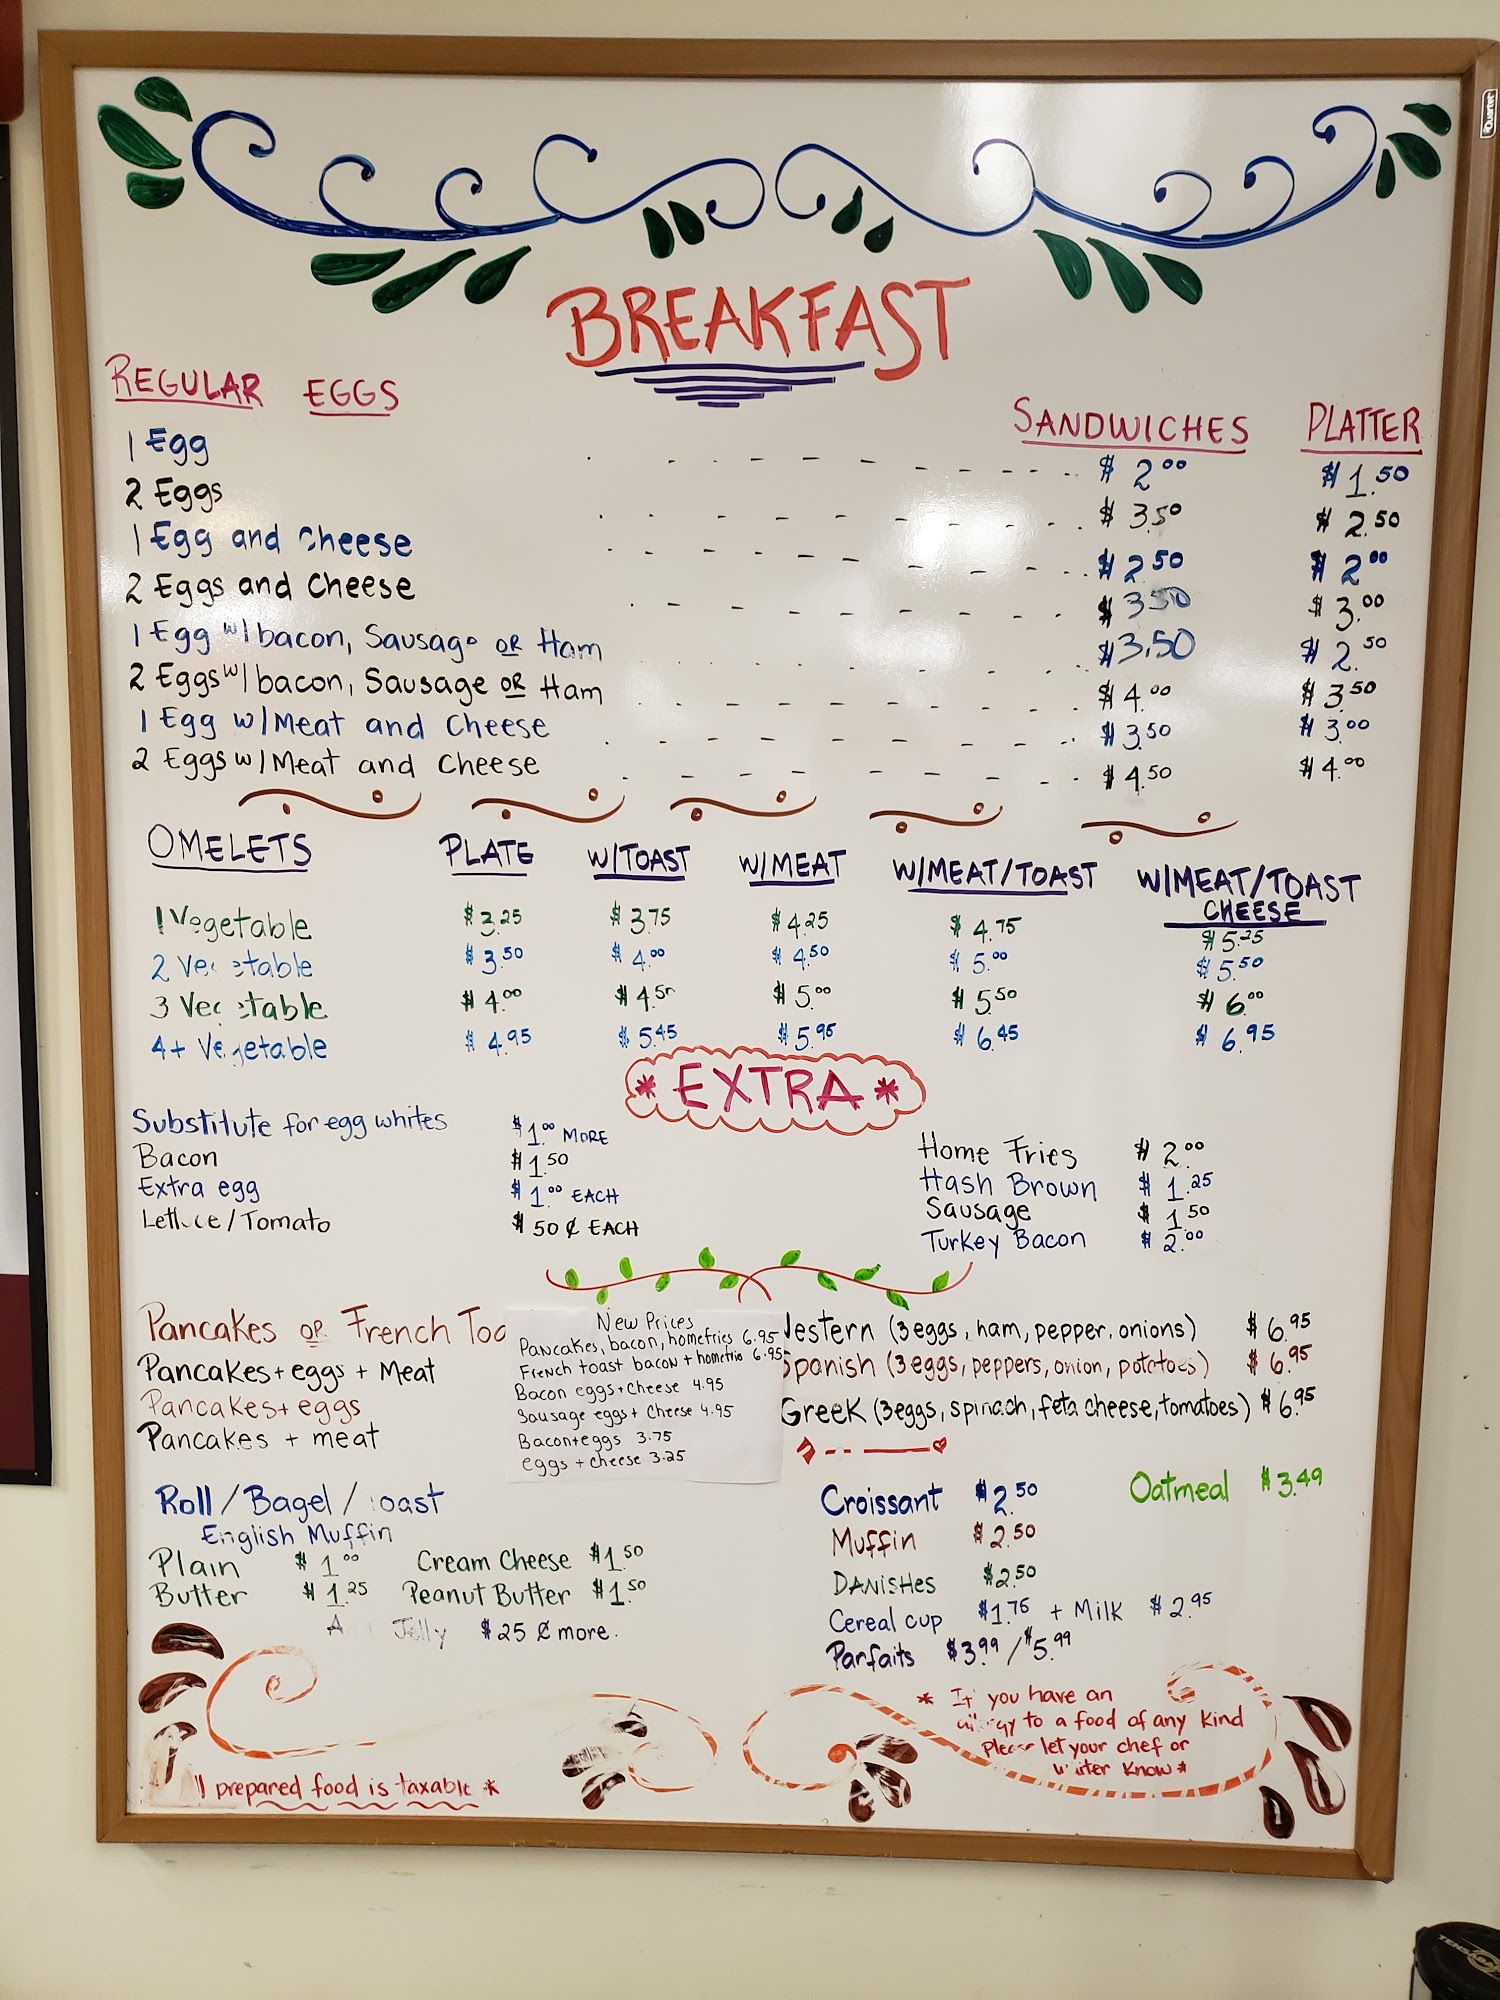 Quartet
BREAKFAST
REGULAR EGGS SANDWICHES PLATTER
1 Egg $2.00 $1.50
2 Eggs $3.50 $2.50
1 Egg and Cheese $2.50 $2.00
2 Eggs and Cheese $3.50 $3.00
1 Egg w/ bacon, Sausage OR Ham $3.50 $2.50
2 Eggs w/ bacon, Sausage OR Ham $4.00 $3.50
1 Egg w/ Meat and Cheese $3.50 $3.00
2 Eggs w/ Meat and Cheese $4.50 $4.00
OMELETS PLATE W/TOAST W/MEAT W/MEAT/TOAST W/MEAT/TOAST
CHEESE
1 Vegetable $3.25 $3.75 $4.25 $4.75 $5.25
2 Vegetable $3.50 $4.00 $4.50 $5.00 $5.50
3 Vegetable $4.00 $4.50 $5.00 $5.50 $6.00
4+ Vegetable $4.95 $5.45 $5.95 $6.45 $6.95
* EXTRA *
Substitute for egg whites $1.00 MORE
Bacon $1.50
Extra egg $1.00 EACH
Lettuce/Tomato $50¢ EACH
Home Fries $2.00
Hash Brown $1.25
Sausage $1.50
Turkey Bacon $2.00
Pancakes OR French Toa
Pancakes + eggs + Meat
Pancakes + eggs
Pancakes + meat
New Prices
Pancakes, bacon, homefries 6.95
French toast bacon + homefrio 6.95
Bacon eggs + Cheese 4.95
Sausage eggs + Cheese 4.95
Bacon + eggs 3.75
eggs + cheese 3.25
Western (3 eggs, ham, pepper, onions) $6.95
Spanish (3 eggs, peppers, onion, potatoes) $6.95
Greek (3 eggs, spinach, feta cheese, tomatoes) $6.95
Roll / Bagel / toast
English Muffin
Plain $1.00 Cream Cheese $1.50
Butter $1.25 Peanut Butter $1.50
Jelly $25¢ more.
Croissant $2.50 Oatmeal $3.49
Muffin $2.50
DANISHes $2.50
Cereal cup $1.75 + Milk $2.95
Parfaits $3.99 / $5.99
* If you have an
allergy to a food of any kind
Please let your chef or
waiter know *
prepared food is taxable *